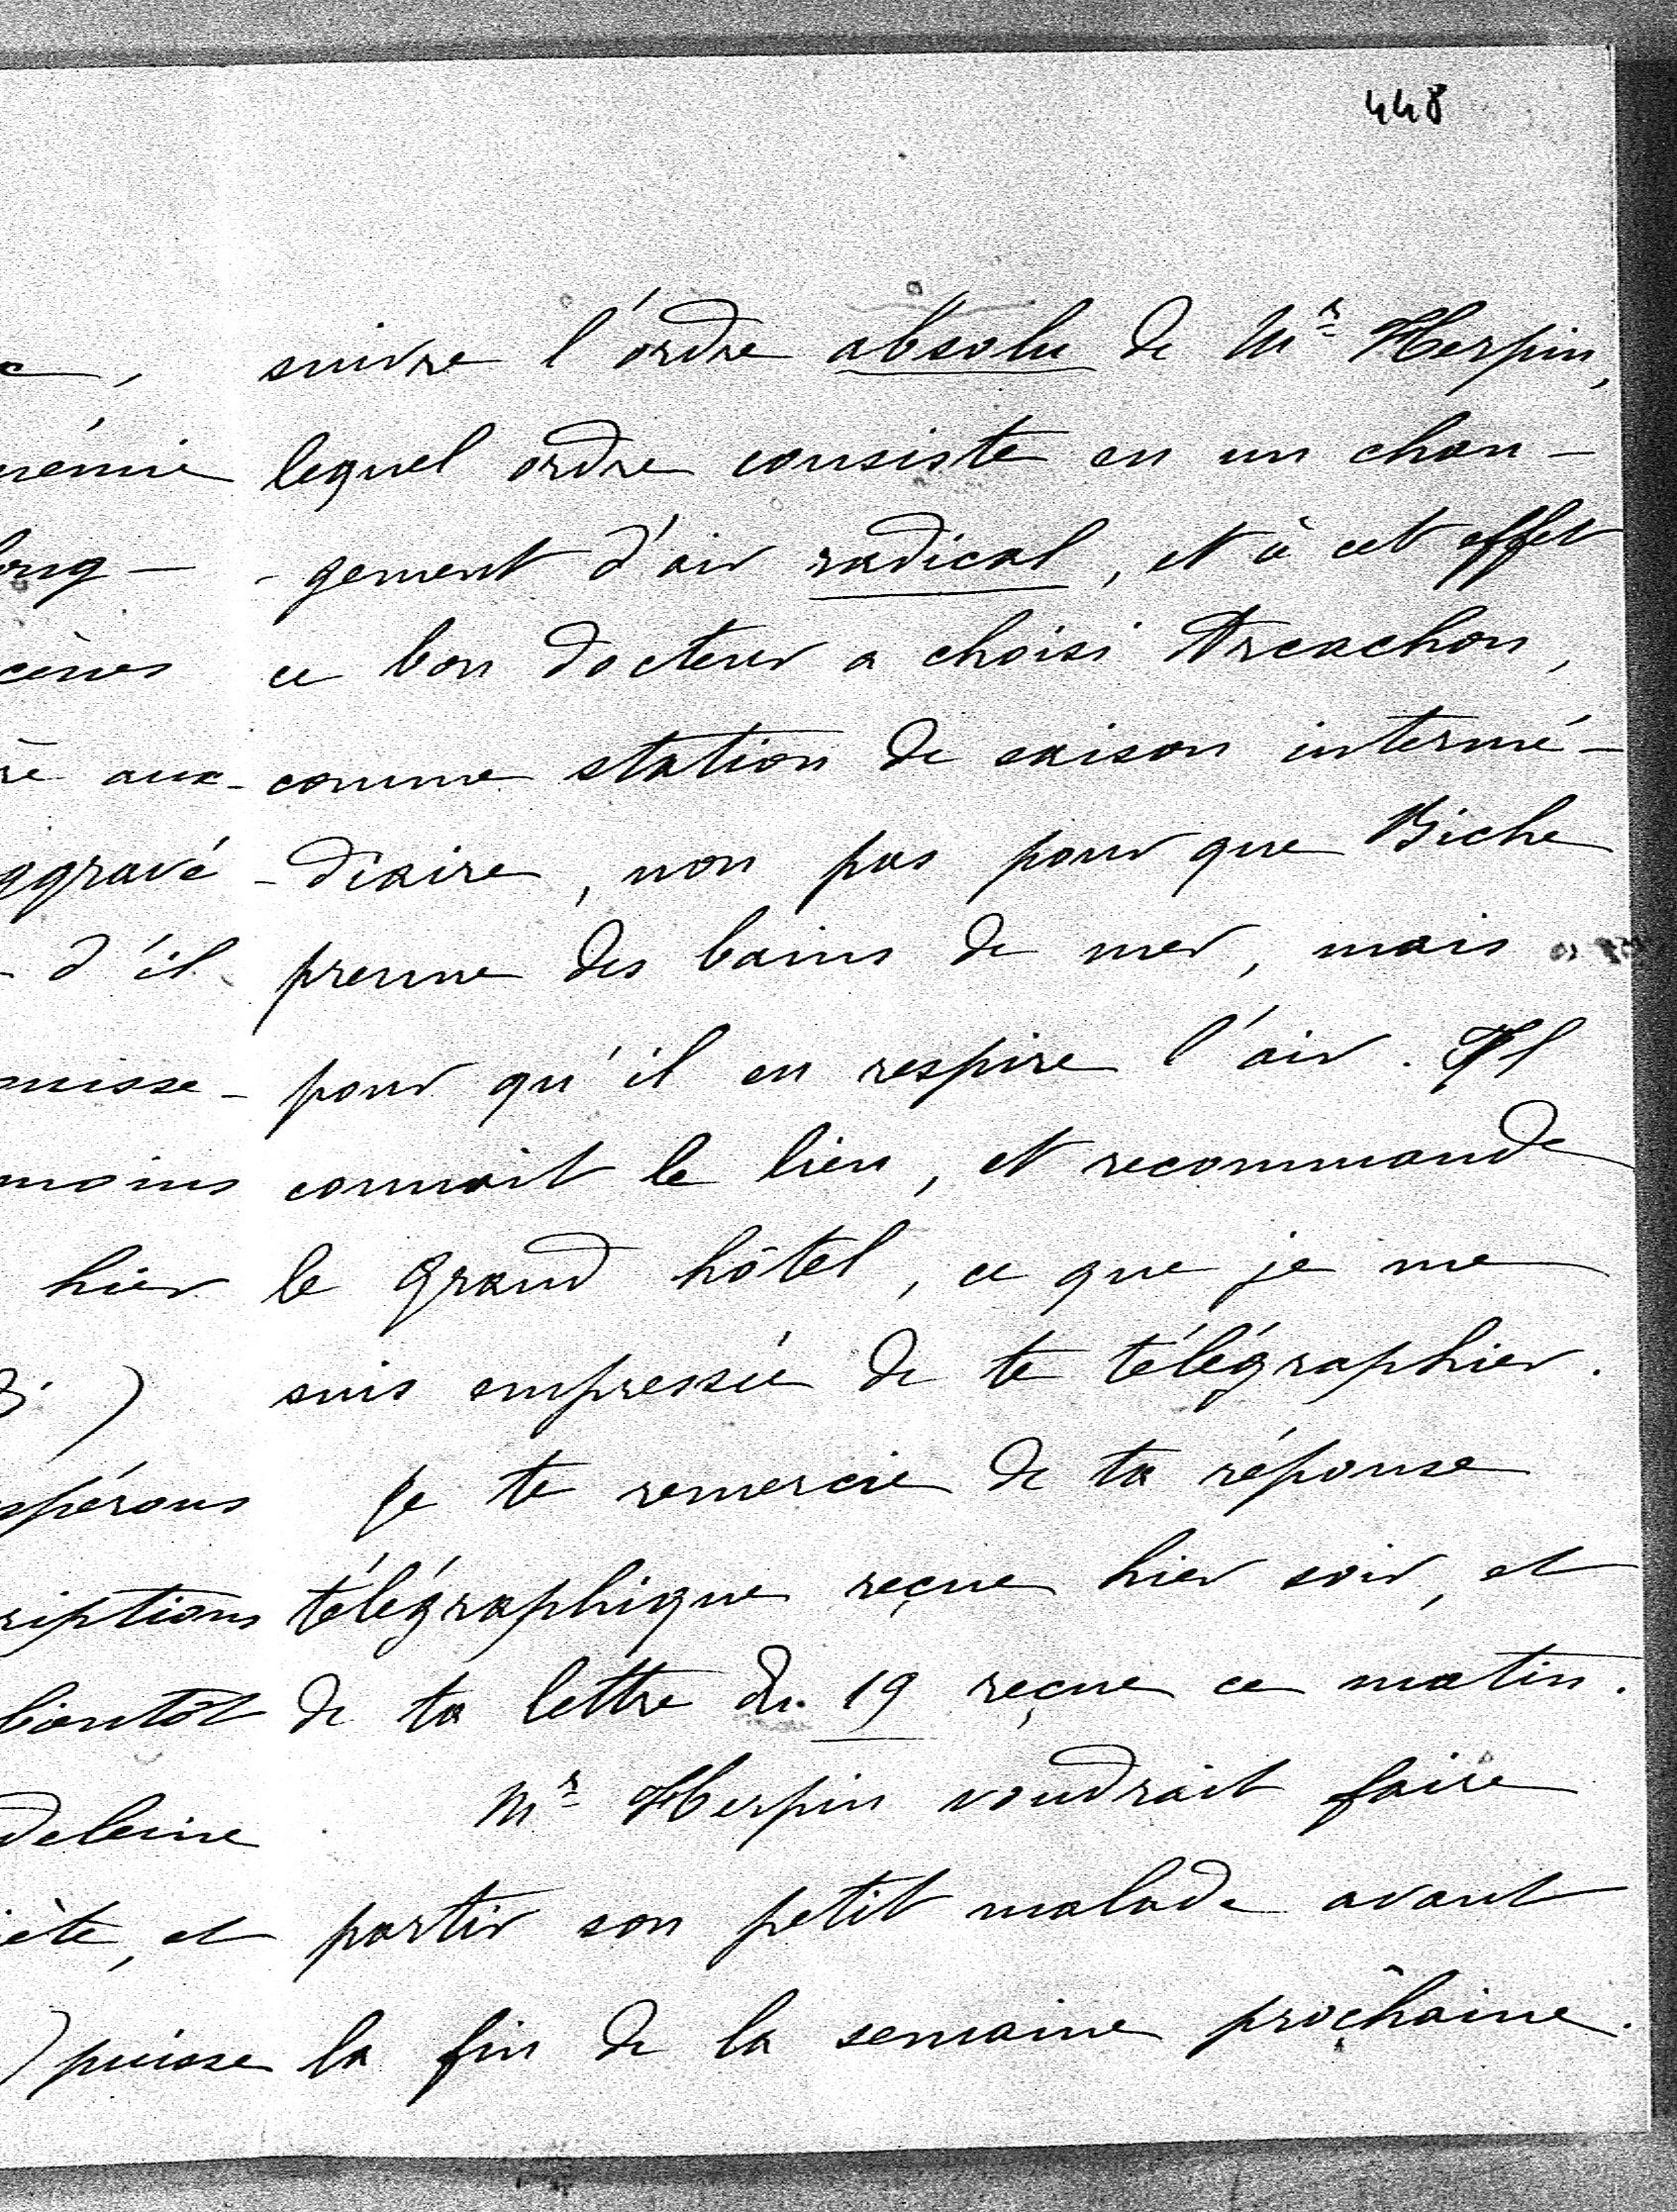 448
suivre l'ordre absolu de Mr Herpin,
lequel ordre consiste en un chan-
-gement d'air radical, et à cet effet
ce bon docteur a choisi Arcachon,
comme station de saison intermé-
-diaire, non pas pour que Biche
prenne des bains de mer, mais
pour qu'il en respire l'air. Il
connait le lieu, et recommande
le grand hôtel, ce que je me
suis empressée de te télégraphier.
Je te remercie de ta réponse
télégraphique reçue hier soir, et
de ta lettre du 19 reçue ce matin.
Mr Herpin voudrait faire
partir son petit malade avant
la fin de la semaine prochaine.
aux-
d'il
moins
hier
bientôt
et
puisse